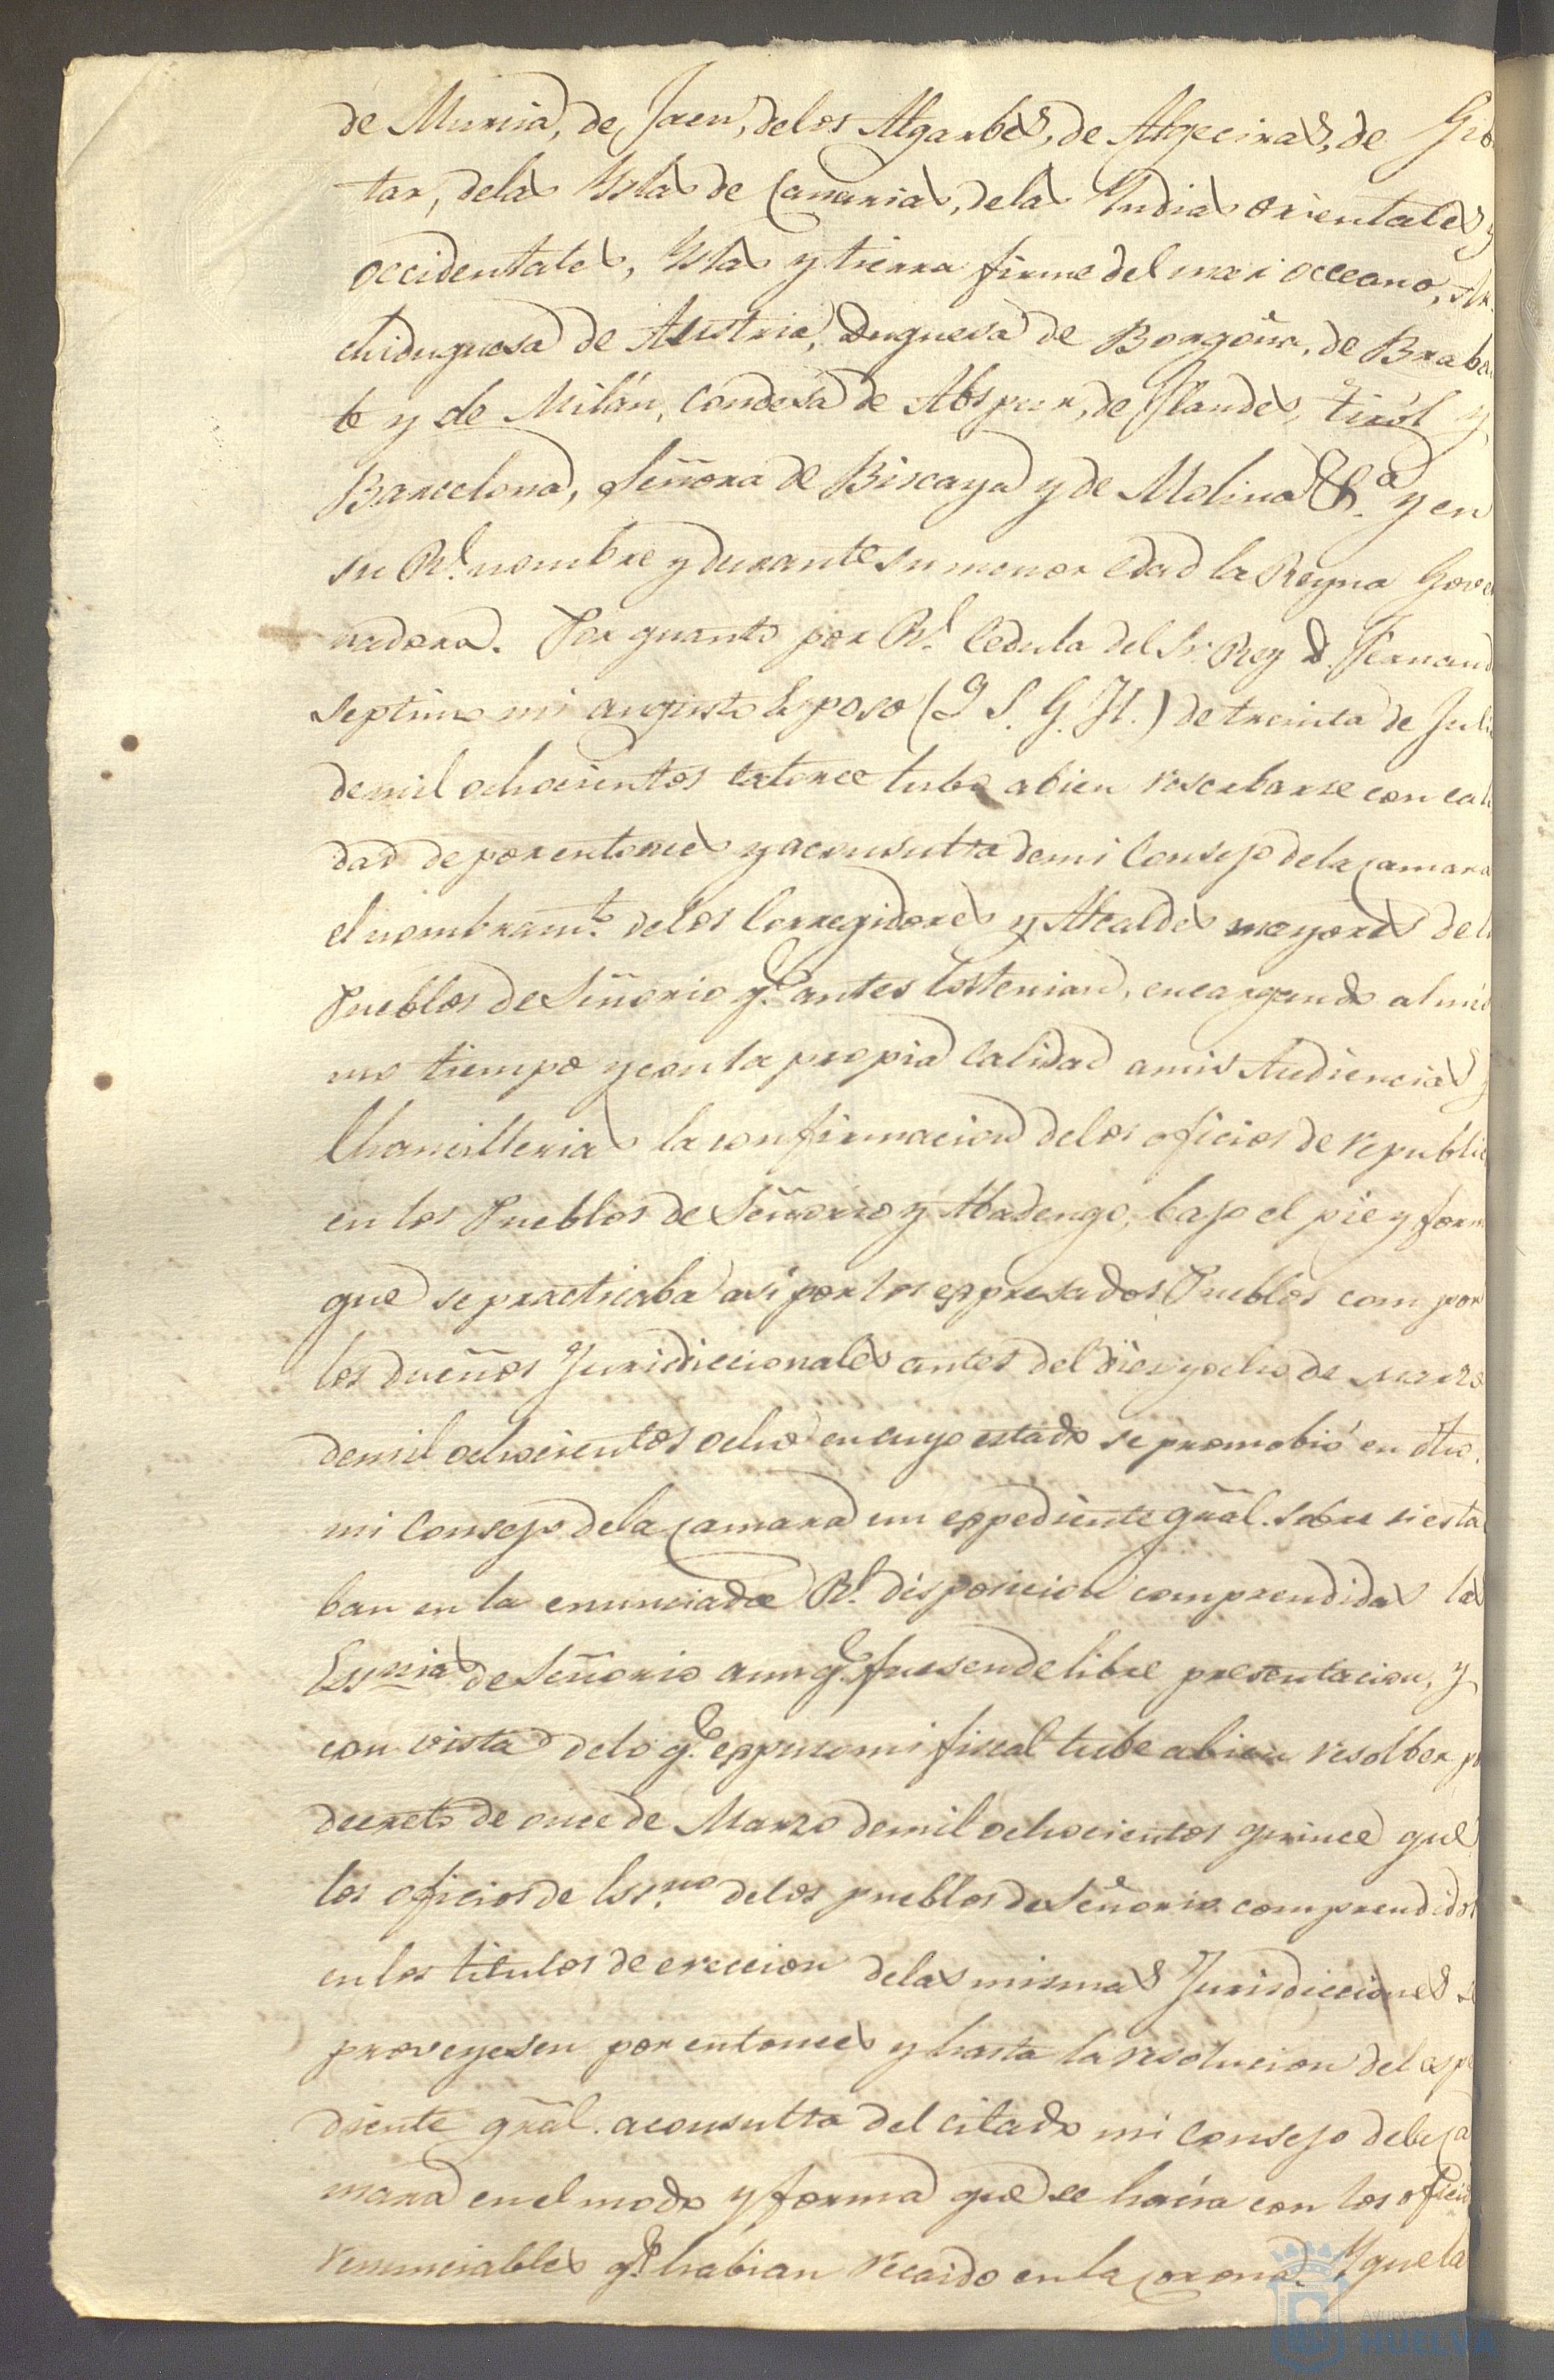 de Murcia, de Jaen, delos Algarbes, de Algeciras, de Gib
tar, delas Yslas de Canarias, delas Yndias orientales y
occidentales, Yslas y tierra firme del mar occeano, Ar
chiduquesa de Austria, Duquesa de Borgoña, de Braba
te y de Milán, Condesa de Abspur, de Flandes, tiról y
Barcelona, Señora de Biscaya y de Molina &.ª y en
su Rl. nombre y durante su menor edad la Reyna Gove
nadora. Por quanto por Rl. Cedula del Sr. Rey D. Fernand
septimo mi augusto Esposo (Q. S. G. H.) de treinta de Juli
demil ochocientos catorce tubo abien reserbarse con cali
dad de por entonces y aconsulta demi Consejo dela Camara
el nombramto. delos Corregidores y Alcaldes mayores de l
Pueblos de Señorio qe. antes los tenian, encargando al mis
mo tiempo y con la propia calidad amis Audiencias y
Chancillerias la confirmacion delos oficios de republic
en los Pueblos de Señorio y Abadengo, bajo el pie y form
que se practicaba asi por los expresados Pueblos com por
los dueños Juridiccionales antes del diez y ocho de marzo
demil ochocientos ocho en cuyo estado se promobió en dho.
mi Consejo dela Camara un expediente gñal. sobre si esta
ban en la enunciada Rl. disposicion comprendidas las
Essnias de Señorio aunqe. fuesen de libre presentacion, y
con vista delo qe. expuso mi fiscal tube abien resolber p
decreto de once de Marzo demil ochocientos quince que
los oficios de Ess.no delos pueblos de Señorio comprendidos
en los titulos de ereccion delas mismas Jurisdicciones se
proveyesen por entonces y hasta la resolucion del espe
diente gñal. aconsulta del citado mi Consejo dela Ca
mara en el modo y forma que se hacia con los oficio
renunciables qe. habian recaido en la Corona. Y que la
HUELVA